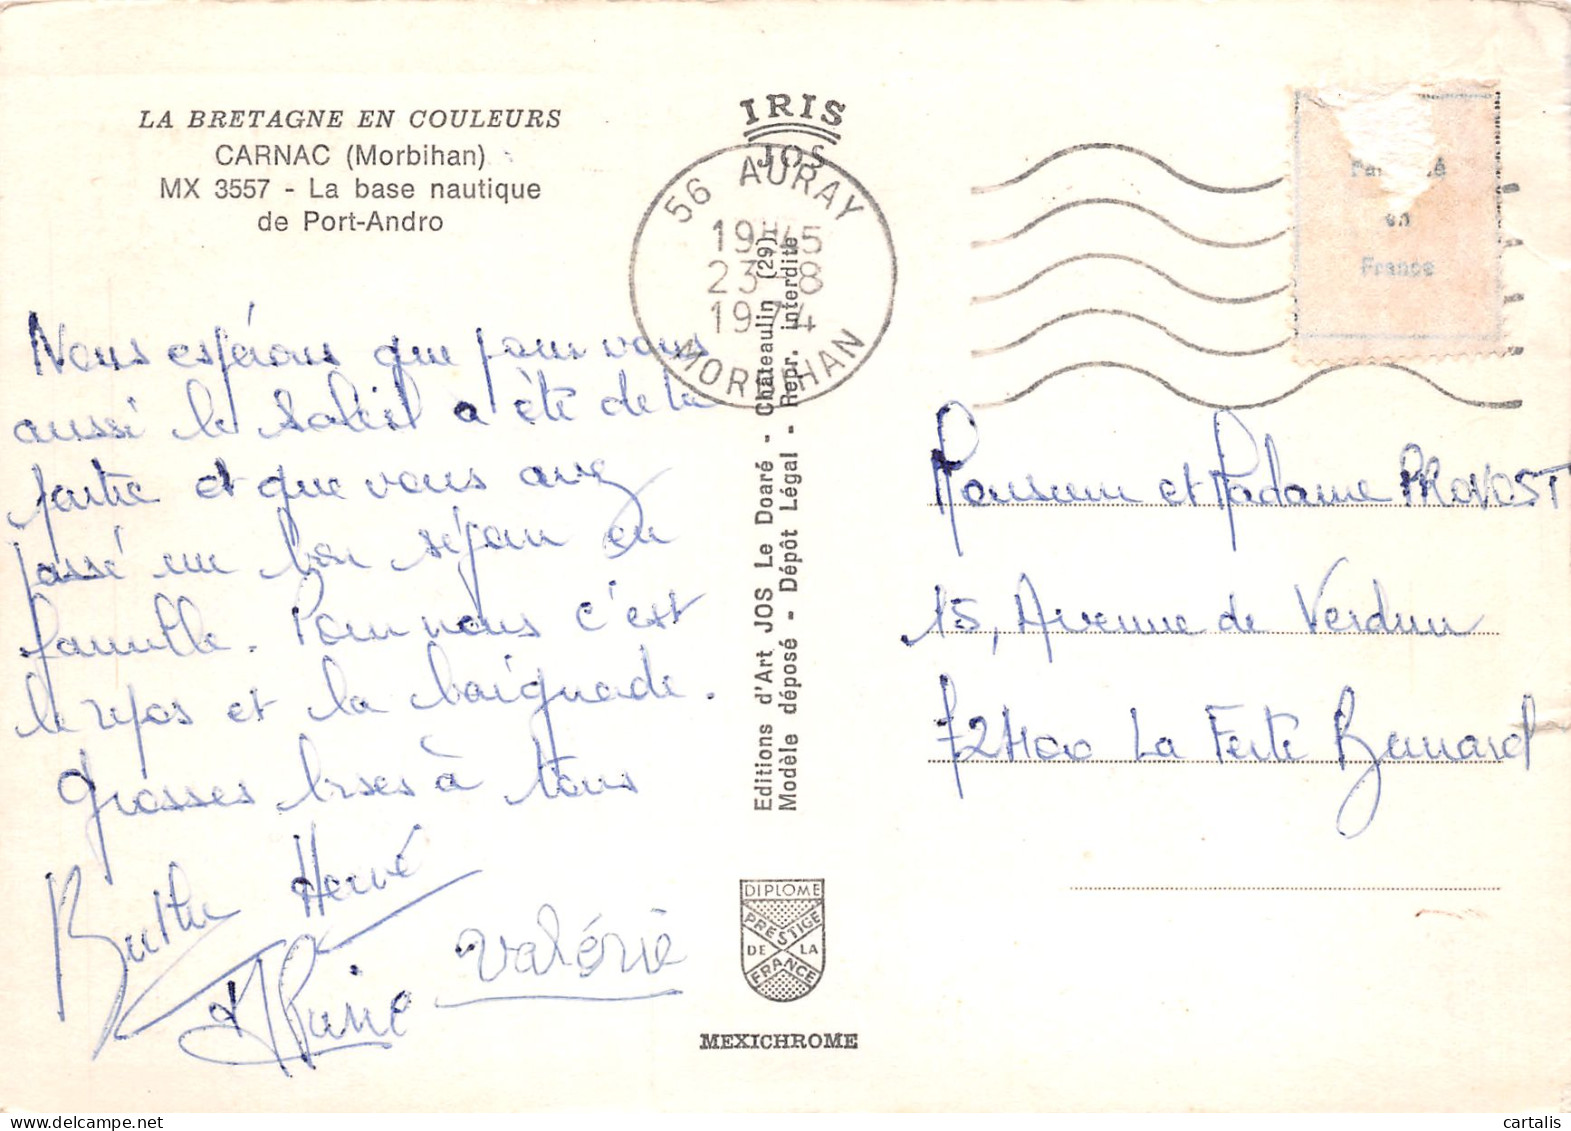 LA BRETAGNE EN COULEURS
CARNAC (Morbihan)
MX 3557 - La base nautique
de Port-Andro
Nous espérons que pour vous
aussi le soleil a été de la
partie et que vous avez
passé un bon séjour en
famille. Pour nous c'est
le repos et la baignade.
Grosses bises à tous
Hervé
Valérie
IRIS
JOS
56 AURAY
19H45
23-8
1974
MORBIHAN
Editions d'Art JOS Le Doaré - Châteaulin (29)
Modèle déposé - Dépôt Légal - Repr. interdite
DIPLOME
PRESTIGE
DE LA
FRANCE
MEXICHROME
en
France
Monsieur et Madame PROVOST
15, Avenue de Verdun
72400 La Ferté Bernard
cartalis